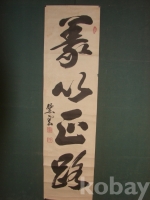 義以正路
Robay